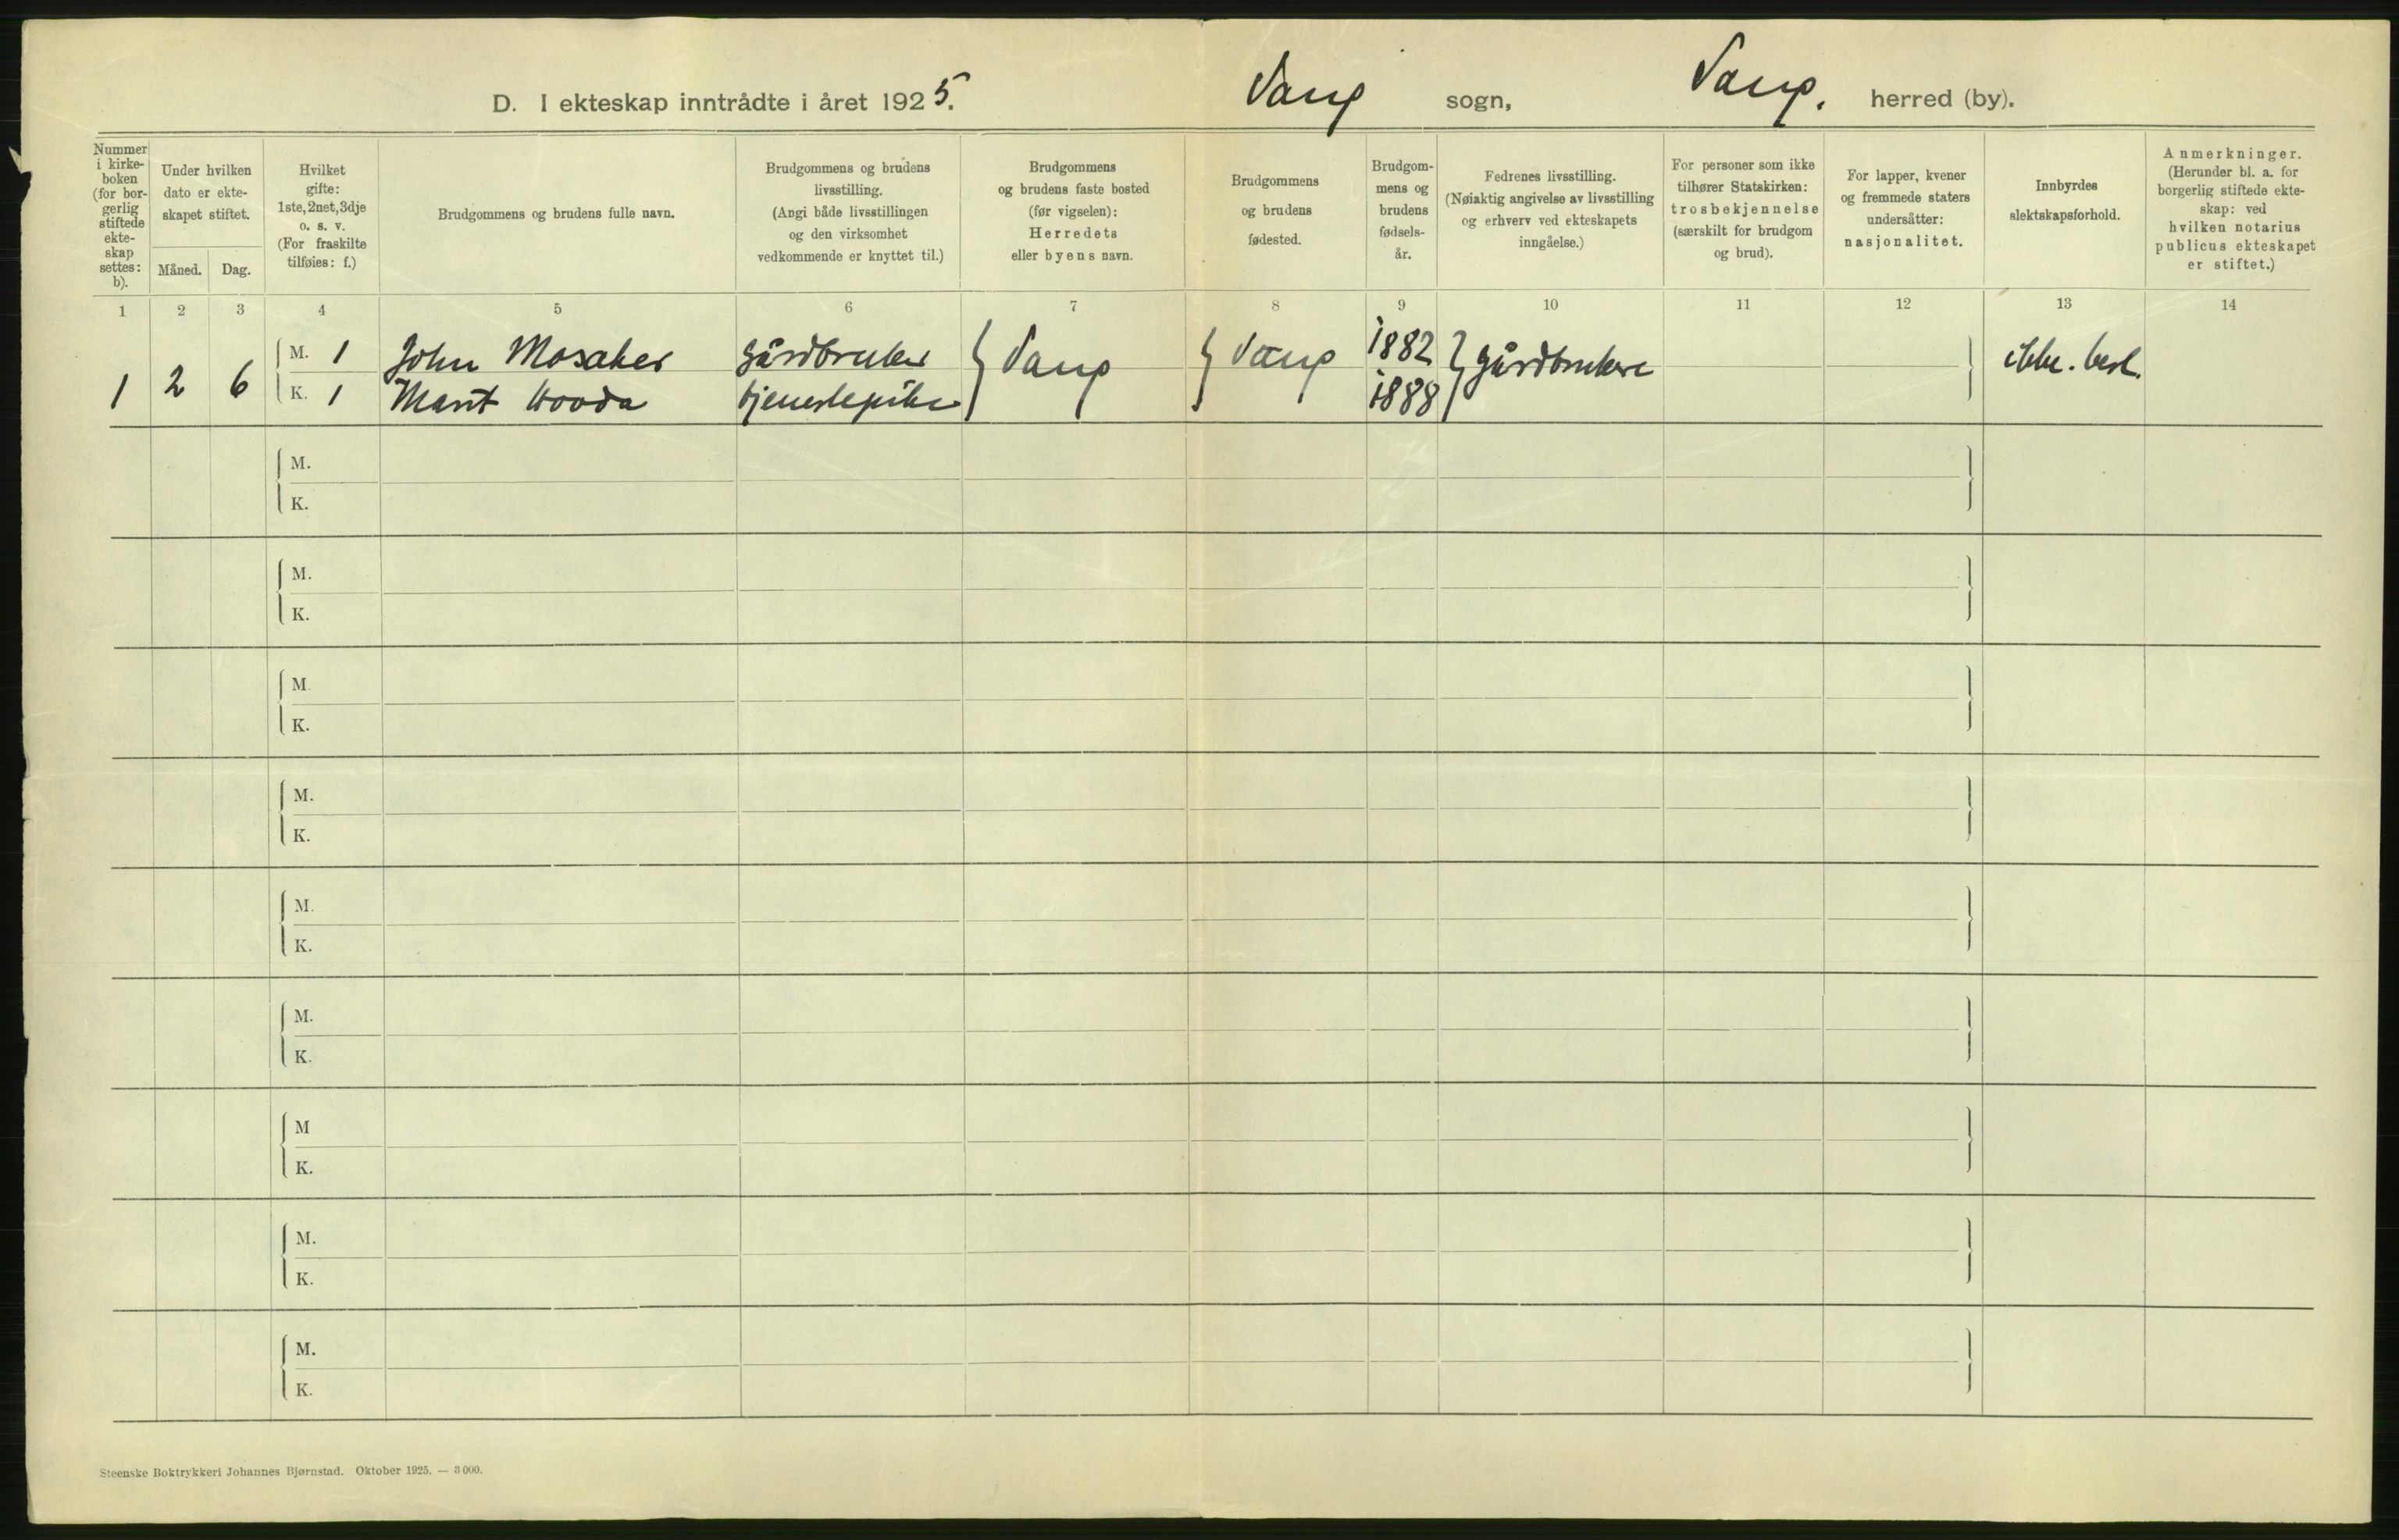 D. I ekteskap inntrådte i året 1925. Vang sogn, Vang. herred (by).
Nummer i kirke-boken (for bor-gerlig stiftede ekte-skap settes: b).
Under hvilken dato er ekte-skapet stiftet.
Måned. Dag.
Hvilket gifte: 1ste, 2net, 3dje o. s. v. (For fraskilte tilføies: f.)
Brudgommens og brudens fulle navn.
Brudgommens og brudens livsstilling. (Angi både livsstillingen og den virksomhet vedkommende er knyttet til.)
Brudgommens og brudens faste bosted (før vigselen): Herredets eller byens navn.
Brudgommens og brudens fødested.
Brudgom-mens og brudens fødsels-år.
Fedrenes livsstilling. (Nøiaktig angivelse av livsstilling og erhverv ved ekteskapets inngåelse.)
For personer som ikke tilhører Statskirken: trosbekjennelse (særskilt for brudgom og brud).
For lapper, kvener og fremmede staters undersåtter: nasjonalitet.
Innbyrdes slektskapsforhold.
Anmerkninger. (Herunder bl. a. for borgerlig stiftede ekte-skap: ved hvilken notarius publicus ekteskapet er stiftet.)
1 2 3 4 5 6 7 8 9 10 11 12 13 14
1 2 6 M. 1 John Mosaker gårdbruker Vang Vang 1882 gårdbrukere ikke. besl.
K. 1 Marit tjenestepike 1888
M.
K.
M.
K.
M.
K.
M.
K.
M.
K.
M.
K.
M
K.
M.
K.
M.
K.
Steenske Boktrykkeri Johannes Bjørnstad. Oktober 1925. — 3 000.